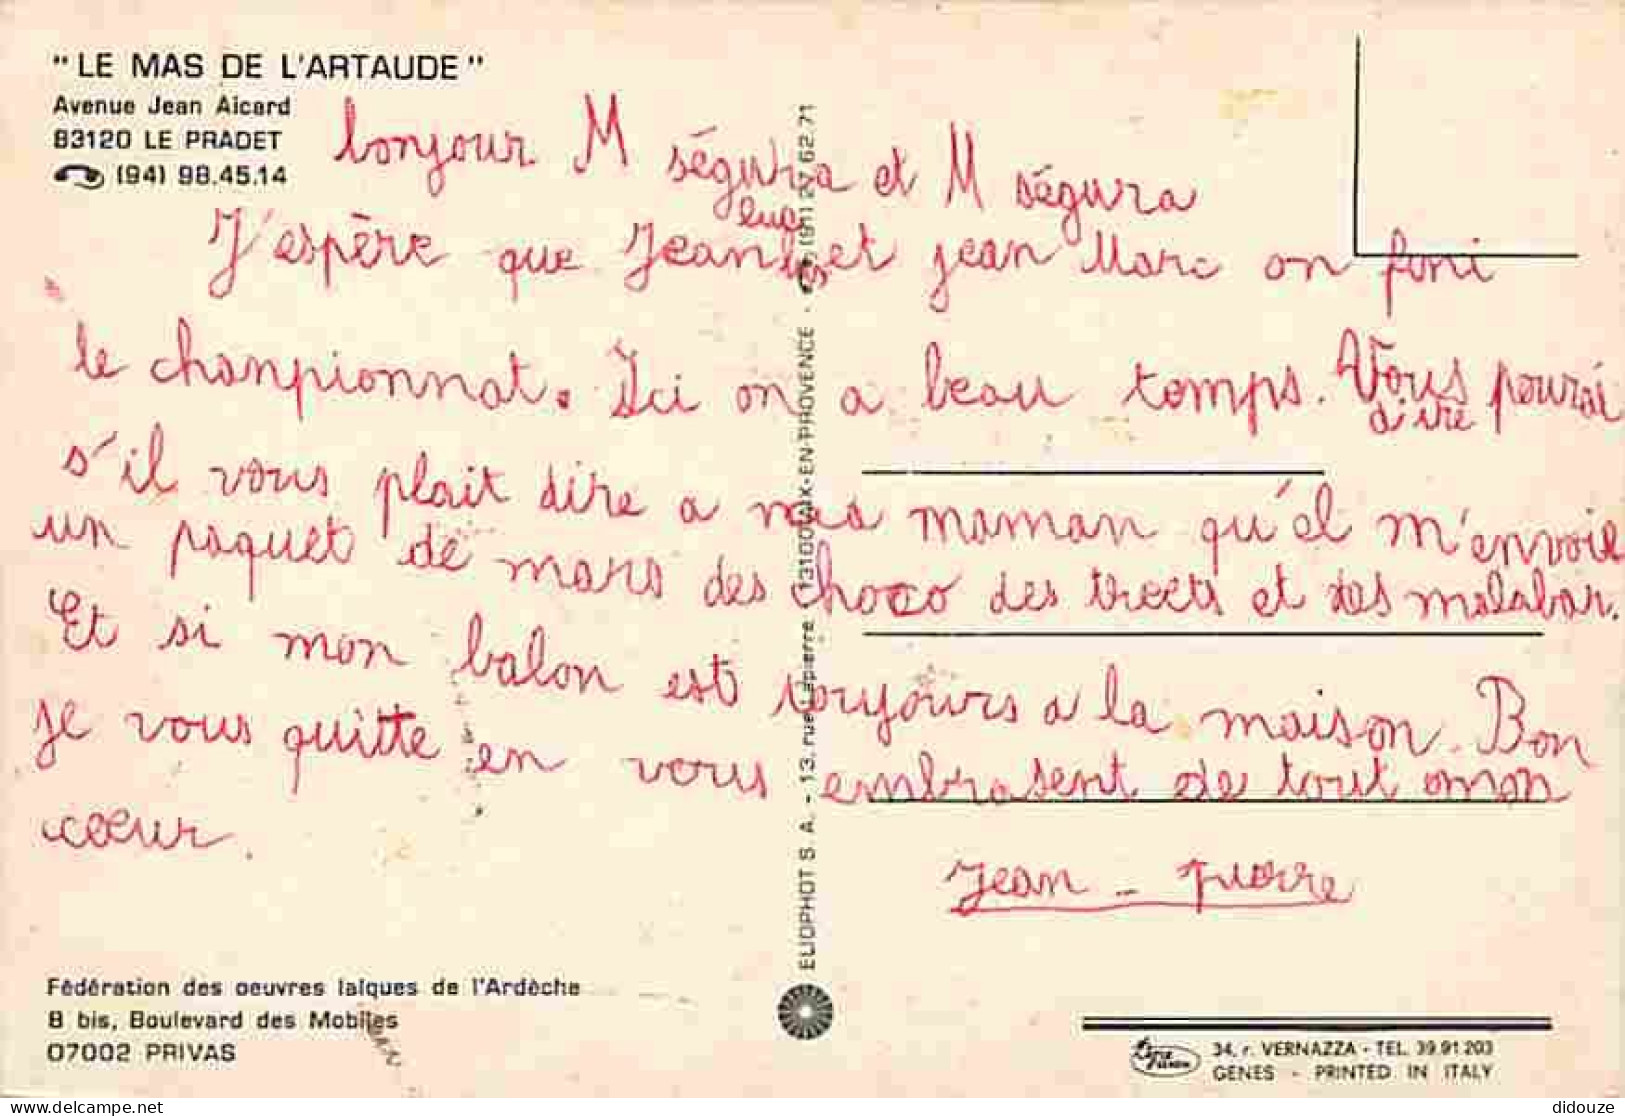 "LE MAS DE L'ARTAUDE"
Avenue Jean Aicard
83120 LE PRADET
(94) 98.45.14
bonjour M ségura et M ségura
J'espère que Jean luc et jean Marc on fini
le chanpionnat. Ici on a beau temps. Vous pourai
dire
s'il vous plait dire a ma maman qu'el m'envoie
un paquet de mars des choco des treets et des malabar.
Et si mon balon est toujours a la maison. Bon
je vous quitte en vous embrasent de tout mon
coeur.
Jean - pierre
ELIOPHOT S. A. - 13, rue Lapierre, 13100 AIX-EN-PROVENCE - (91) 27.62.71
Fédération des oeuvres laïques de l'Ardèche
8 bis, Boulevard des Mobiles
07002 PRIVAS
34, r. VERNAZZA - TEL. 39.91.203
GENES - PRINTED IN ITALY
https://www.delcampe.net
didouze